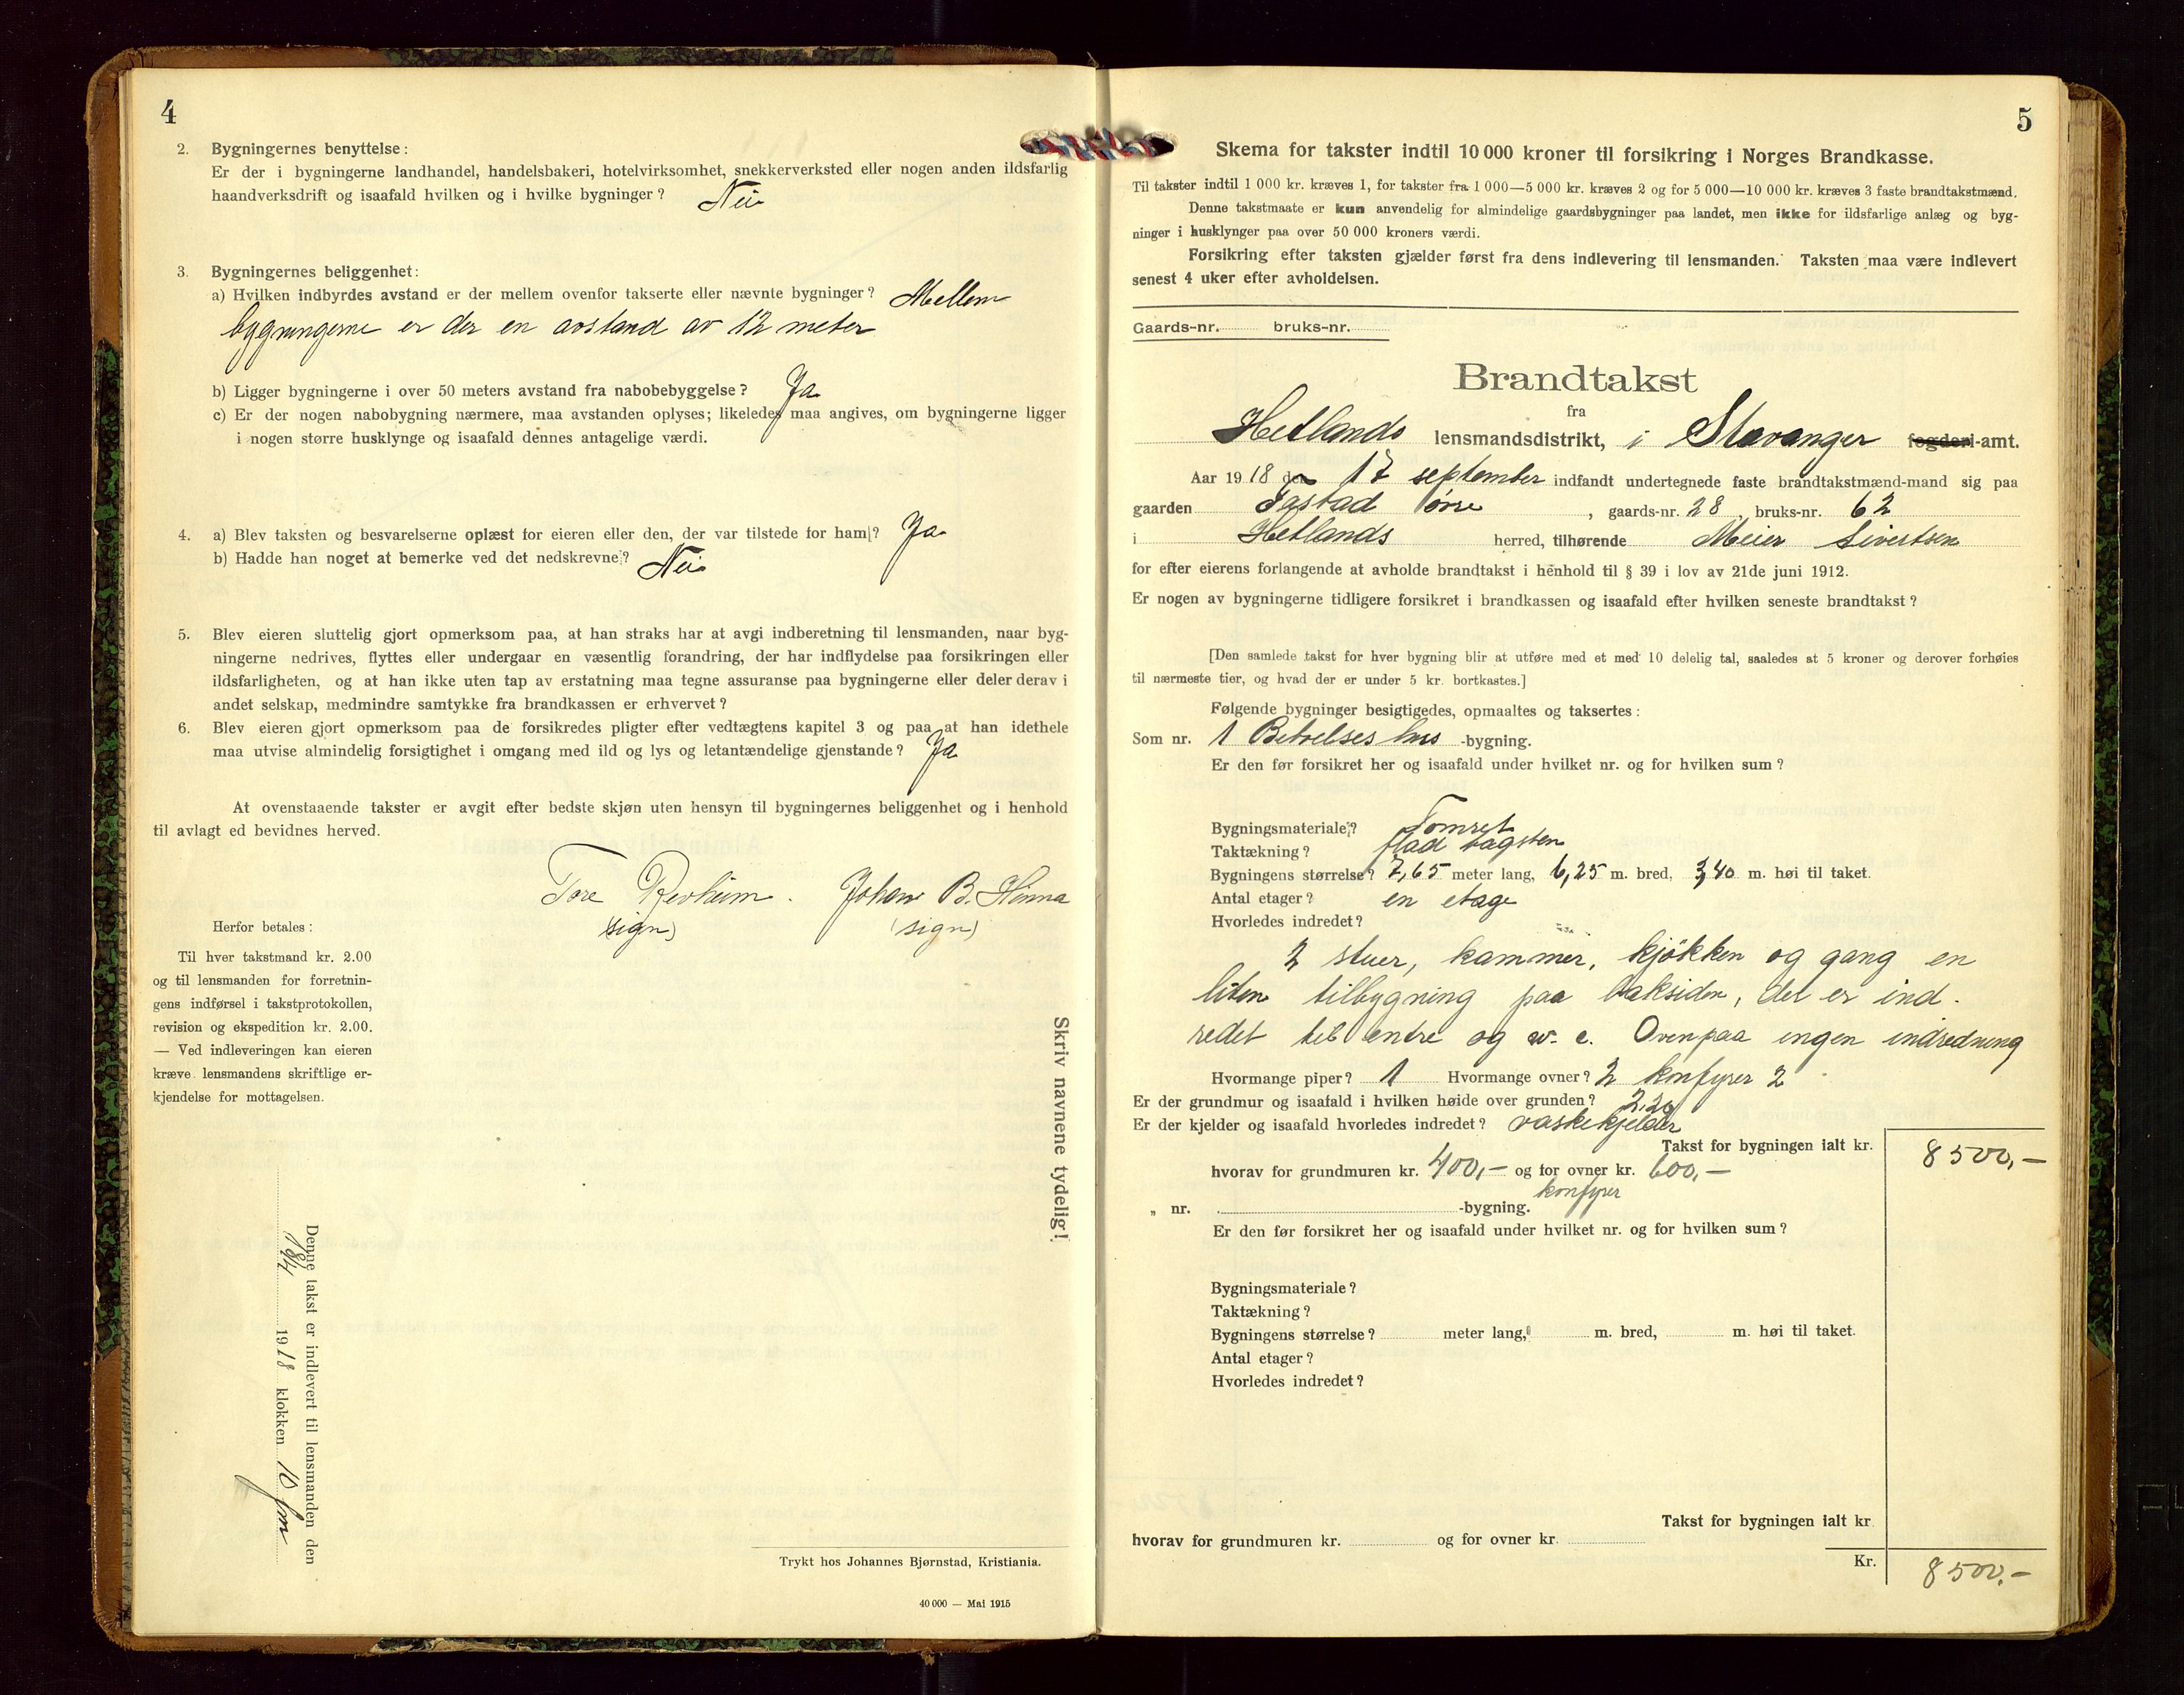 4
2. Bygningernes benyttelse:
Er der i bygningerne landhandel, handelsbakeri, hotelvirksomhet, snekkerverksted eller nogen anden ildsfarlig
haandverksdrift og isaafald hvilken og i hvilke bygninger? Nei
3. Bygningernes beliggenhet:
a) Hvilken indbyrdes avstand er der mellem ovenfor takserte eller nævnte bygninger? Mellem
bygningerne er der en avstand av 12 meter
b) Ligger bygningerne i over 50 meters avstand fra nabobebyggelse? Ja
c) Er der nogen nabobygning nærmere, maa avstanden oplyses; likeledes maa angives, om bygningerne ligger
i nogen større husklynge og isaafald dennes antagelige værdi.
4. a) Blev taksten og besvarelserne oplæst for eieren eller den, der var tilstede for ham? Ja
b) Hadde han noget at bemerke ved det nedskrevne? Nei
5. Blev eieren sluttelig gjort opmerksom paa, at han straks har at avgi indberetning til lensmanden, naar byg-
ningerne nedrives, flyttes eller undergaar en væsentlig forandring, der har indflydelse paa forsikringen eller
ildsfarligheten, og at han ikke uten tap av erstatning maa tegne assuranse paa bygningerne eller deler derav i
andet selskap, medmindre samtykke fra brandkassen er erhvervet?
6. Blev eieren gjort opmerksom paa de forsikredes pligter efter vedtægtens kapitel 3 og paa at han idethele
maa utvise almindelig forsigtighet i omgang med ild og lys og letantændelige gjenstande? Ja
At ovenstaaende takster er avgit efter bedste skjøn uten hensyn til bygningernes beliggenhet og i henhold
til avlagt ed bevidnes herved.
Tore Revheim. Johan B. Hinna
(sign) (sign)
Herfor betales:
Til hver takstmand kr. 2.00
og til lensmanden for forretnin-
gens indførsel i takstprotokollen,
revision og ekspedition kr. 2.00.
— Ved indleveringen kan eieren
kræve lensmandens skriftlige er-
kjendelse for mottagelsen.
Skriv navnene tydelig!
Denne takst er indlevert til lensmanden den
18/4 1918 klokken 10 fm
Trykt hos Johannes Bjørnstad, Kristiania.
40 000 — Mai 1915
5
Skema for takster indtil 10 000 kroner til forsikring i Norges Brandkasse.
Til takster indtil 1 000 kr. kræves 1, for takster fra 1 000—5 000 kr. kræves 2 og for 5 000—10 000 kr. kræves 3 faste brandtakstmænd.
Denne takstmaate er kun anvendelig for almindelige gaardsbygninger paa landet, men ikke for ildsfarlige anlæg og byg-
ninger i husklynger paa over 50 000 kroners værdi.
Forsikring efter taksten gjælder først fra dens indlevering til lensmanden. Taksten maa være indlevert
senest 4 uker efter avholdelsen.
Gaards-nr. bruks-nr.
Brandtakst
fra
Hetlands lensmandsdistrikt, i Stavanger fogderi-amt.
Aar 1918 den 17 september indfandt undertegnede faste brandtakstmænd-mand sig paa
gaarden Tastad øvre, gaards-nr. 28, bruks-nr. 62
i Hetlands herred, tilhørende Meier Sivertsen
for efter eierens forlangende at avholde brandtakst i henhold til § 39 i lov av 21de juni 1912.
Er nogen av bygningerne tidligere forsikret i brandkassen og isaafald efter hvilken seneste brandtakst?
[Den samlede takst for hver bygning blir at utføre med et med 10 delelig tal, saaledes at 5 kroner og derover forhøies
til nærmeste tier, og hvad der er under 5 kr. bortkastes.]
Følgende bygninger besigtigedes, opmaaltes og taksertes:
Som nr. 1 Beboelseshus -bygning.
Er den før forsikret her og isaafald under hvilket nr. og for hvilken sum?
Bygningsmateriale? Tomret
Taktækning? flad tagsten
Bygningens størrelse? 7,65 meter lang, 6,25 m. bred, 3,40 m. høi til taket.
Antal etager? en etage
Hvorledes indredet?
2 stuer, kammer, kjøkken og gang en
liten tilbygning paa baksiden, det er ind-
redet til entre og w. c. Ovenpaa ingen indredning
Hvormange piper? 1 Hvormange ovner? 2 komfyrer 2
Er der grundmur og isaafald i hvilken høide over grunden? 2,20
Er der kjelder og isaafald hvorledes indredet? vaskekjelder
Takst for bygningen ialt kr. 8500,-
hvorav for grundmuren kr. 400,- og for ovner kr. 600,-
komfyrer
„ nr. -bygning.
Er den før forsikret her og isaafald under hvilket nr. og for hvilken sum?
Bygningsmateriale?
Taktækning?
Bygningens størrelse? meter lang, m. bred, m. høi til taket.
Antal etager?
Hvorledes indredet?
Takst for bygningen ialt kr
hvorav for grundmuren kr. og for ovner kr.
Kr. 8500,-